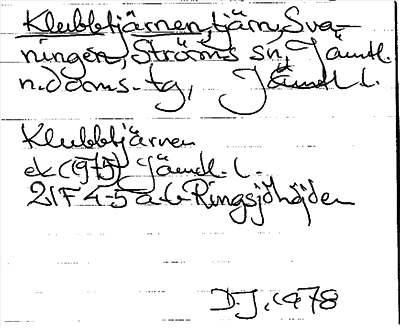 Klubbtjärnen, tjärn, Sva-
ningen, Ströms sn, Jämtl.
n. doms. tg, Jämtl. l.
Klubbtjärnen
ek (1975) Jämtl. l.
21F 4-5 a-b Ringsjöhöjden
D.J. 1978